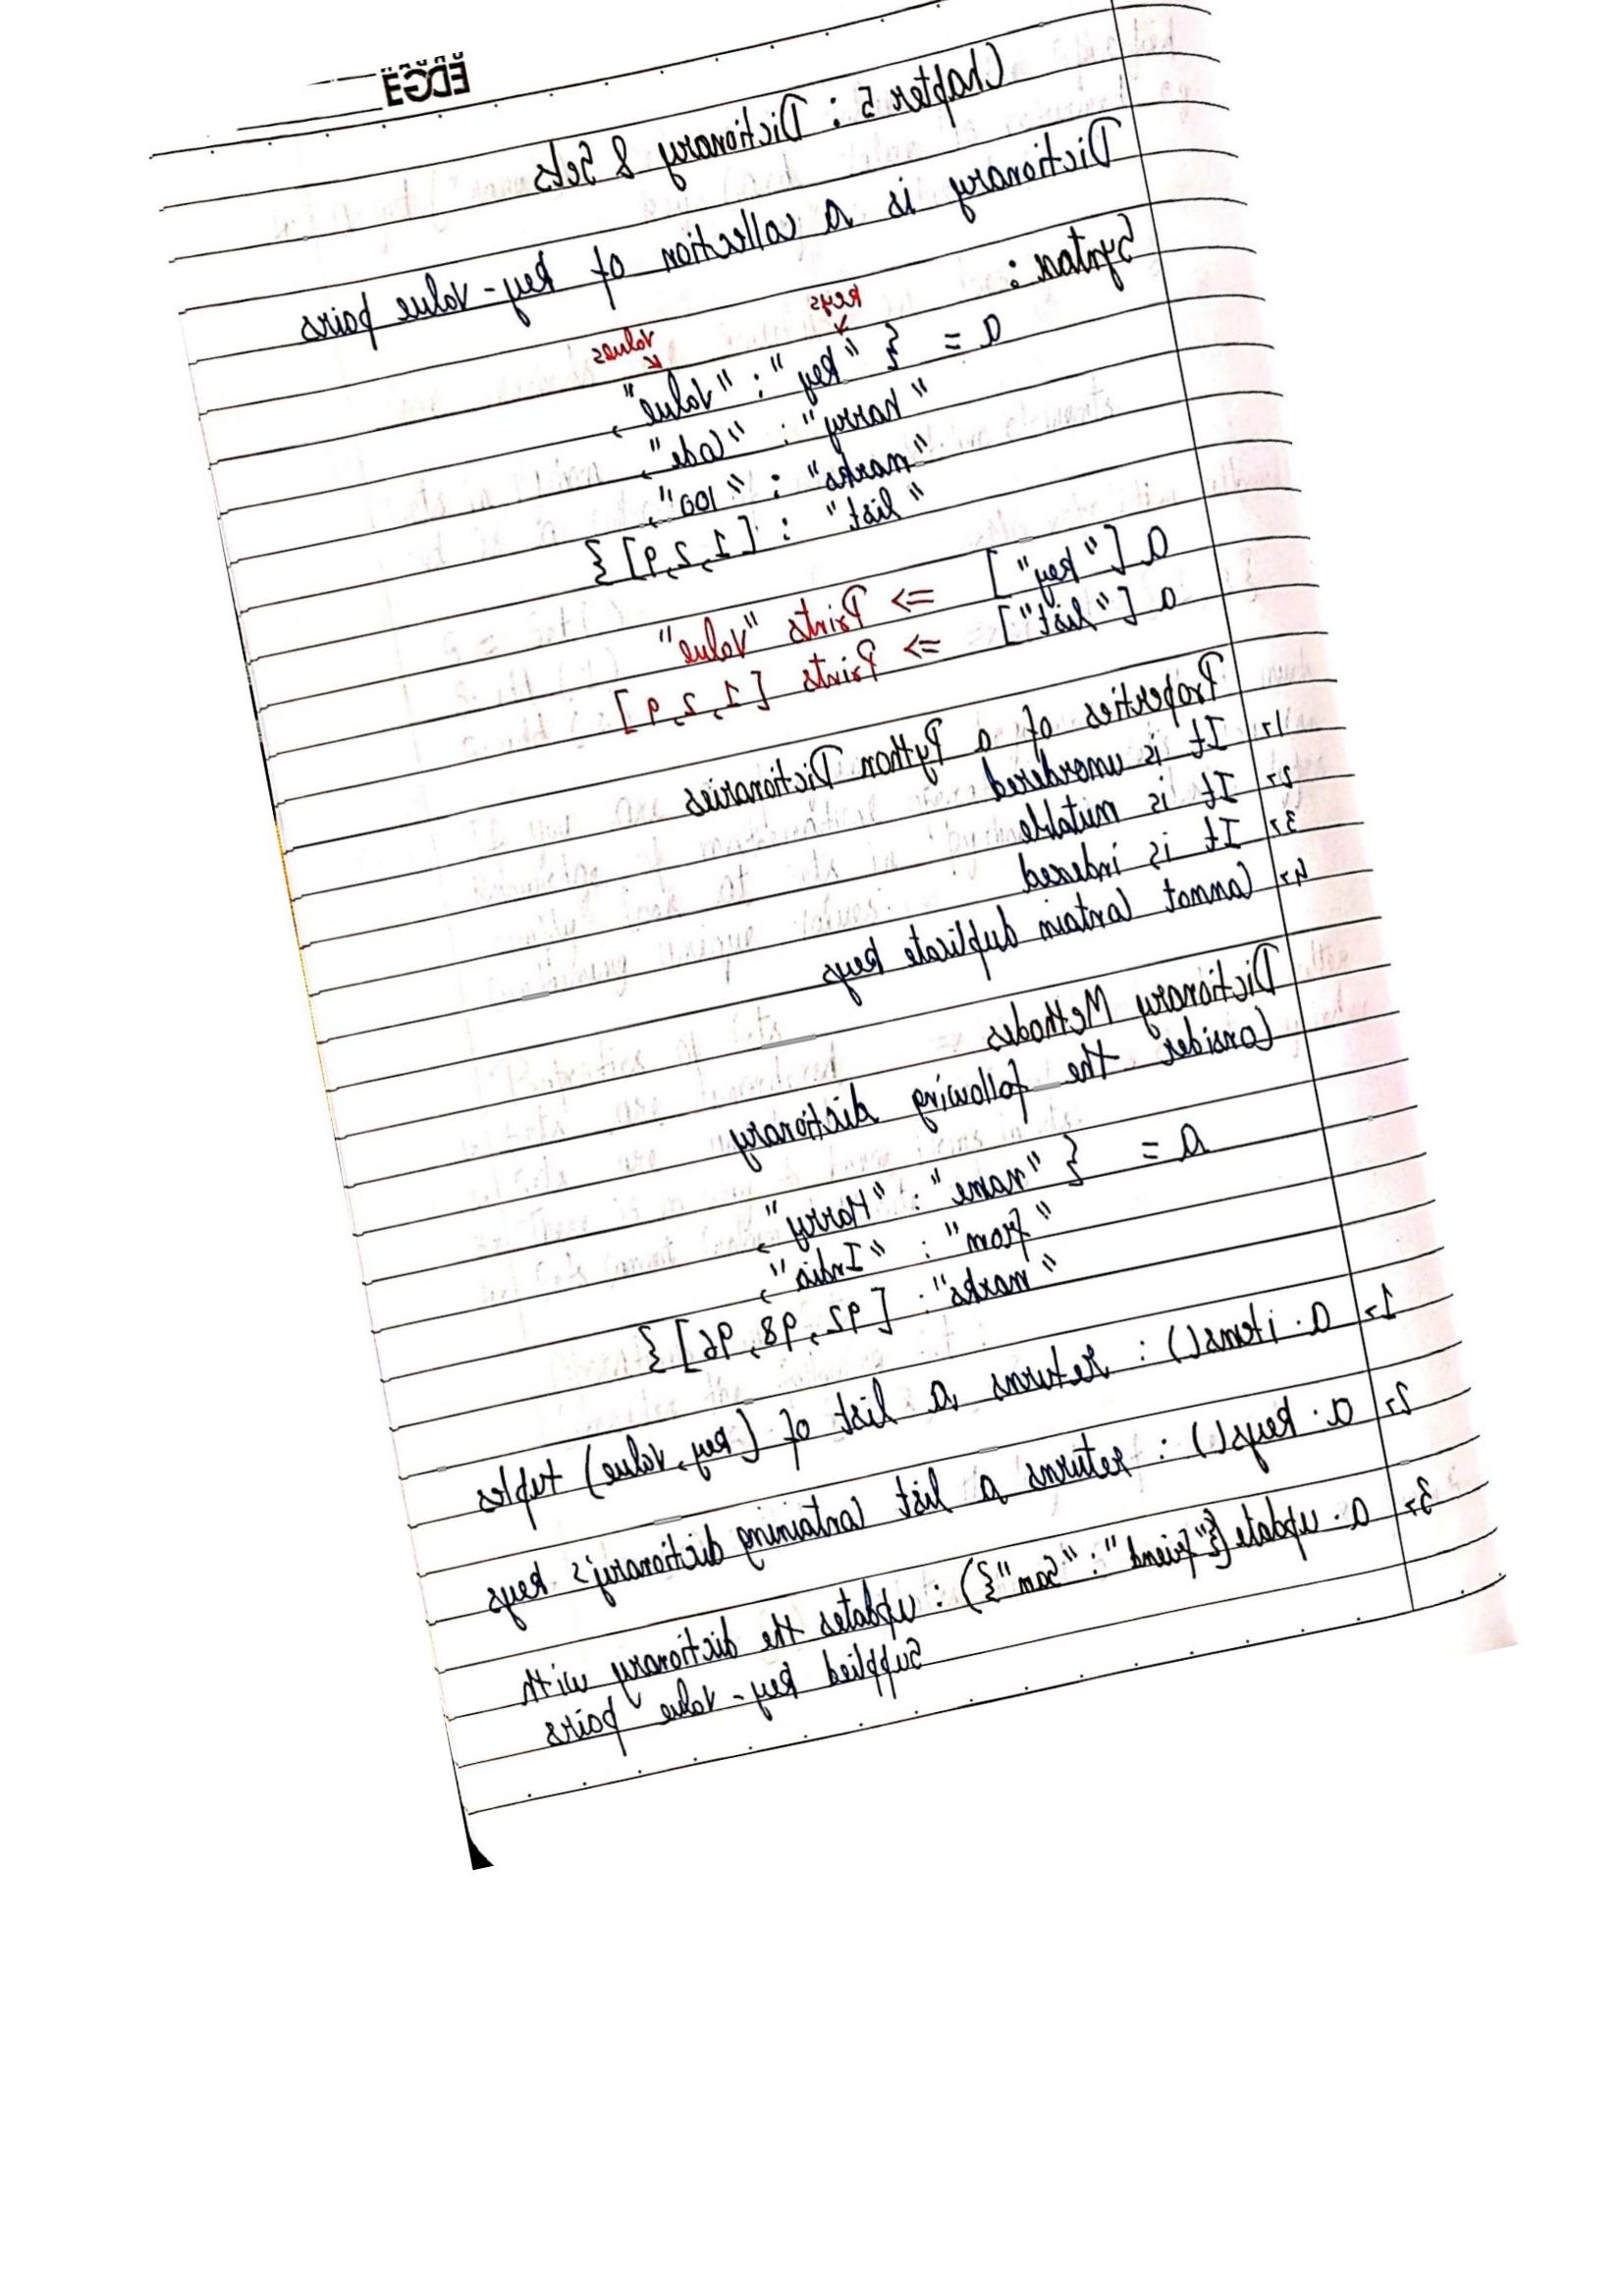 EDGE
Chapter 5 : Dictionary & Sets
Dictionary is a collection of key-value pairs
Syntax :
keys
values
a = { "key" : "value",
"harry" : "Code",
"marks" : "100",
"list" : [1,2,9] }
a ["key"] => Prints "value"
a ["list"] => Prints [1,2,9]
Properties of a Python Dictionaries
1> It is unordered
2> It is mutable
3> It is indexed
4> Cannot Contain duplicate keys
Dictionary Methodes
Consider the following dictionary
a = { "name" : "Harry",
"from" : "India",
"marks" : [92, 98, 96] }
1> a.items() : returns a list of (key, value) tuples
2> a.keys() : returns a list Containing dictionary's keys
3> a.update({"friend" : "Sam"}) : updates the dictionary with
supplied key-value pairs